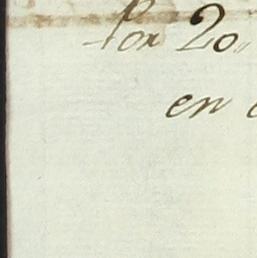 Por 20,,
en